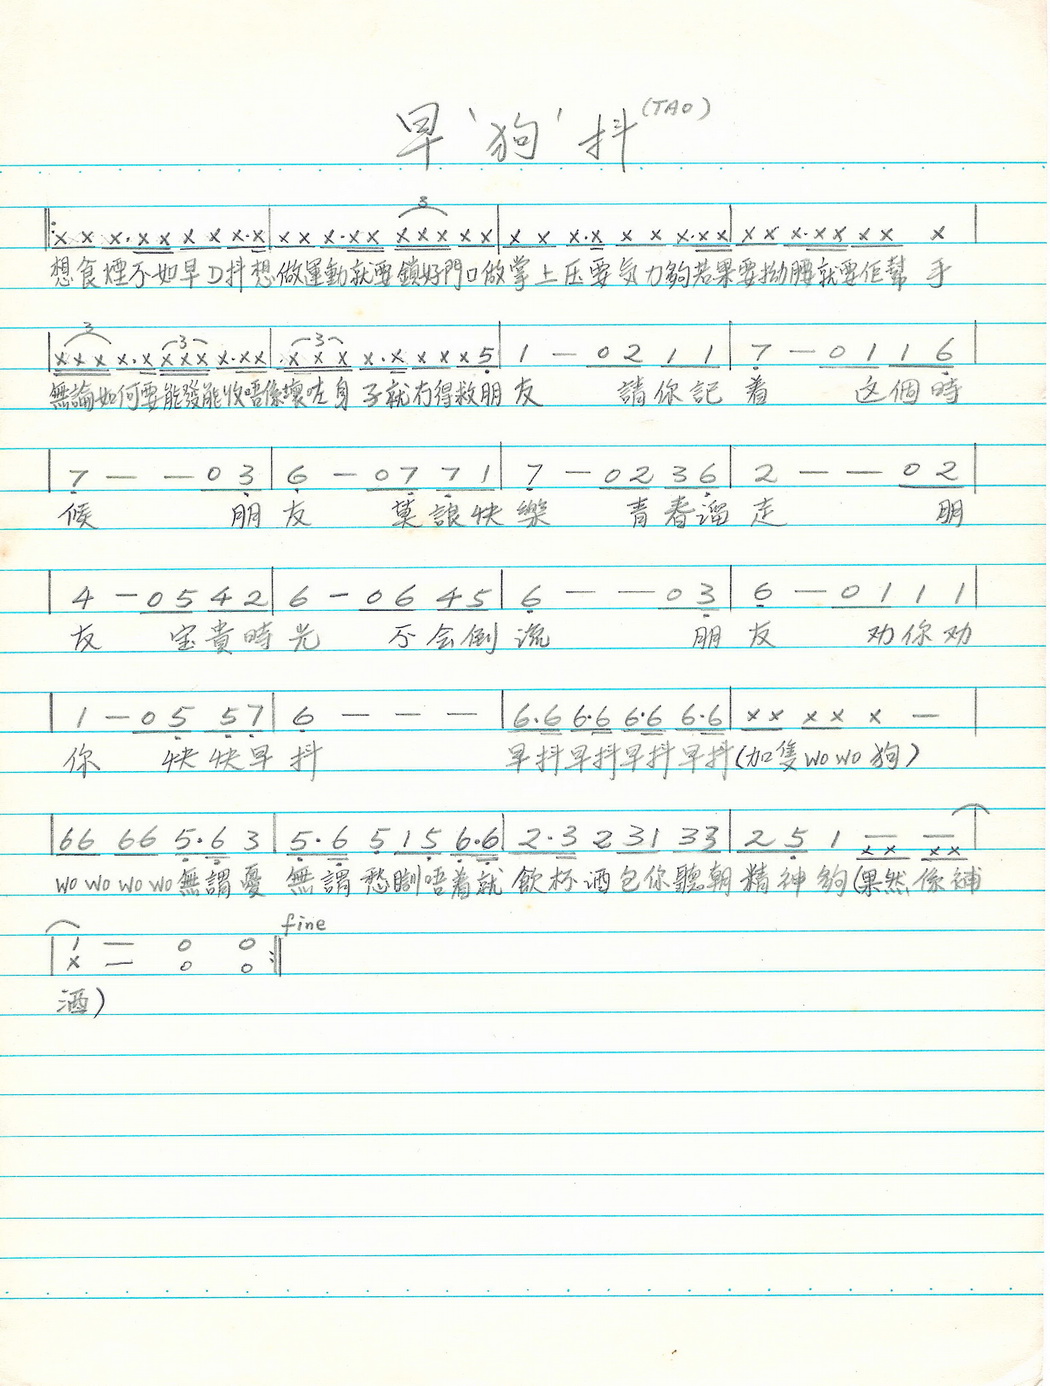 早'狗'抖(TAO)
x x x·x x x x x·x x x x·x x x x x x x x x x·x x x x·x x x x x·x x x x x
3
想食煙不如早D抖想做運動就要鎖好門口做掌上压要気力夠若果要拗腰就要佢幫手
x x x x·x x x x x·x x x x x x·x x x x 5 1 — 0 2 1 1 7 — 0 1 1 6
3 3 3
無論如何要能發能收唔係壞咗身子就冇得救朋友 請你記着 这個時
7 — — 0 3 6 — 0 7 7 1 7 — 0 2 3 6 2 — — 0 2
候 朋友 莫誤快樂 青春溜走 朋
4 — 0 5 4 2 6 — 0 6 4 5 6 — — 0 3 6 — 0 1 1 1
友 宝貴時光 不会倒流 朋友 劝你劝
1 — 0 5 5 7 6 — — — 6·6 6·6 6·6 6·6 x x x x x —
你 快快早抖 早抖早抖早抖早抖(加隻wo wo狗)
66 66 5·6 3 5·6 5 1 5 6·6 2·3 2 3 1 3 3 2 5 1 — —
x x x x
wo wo wo wo無謂憂 無謂愁瞓唔着就飲杯酒包你聽朝精神夠(果然係補
fine
1 — 0 0
x — 0 0
酒)